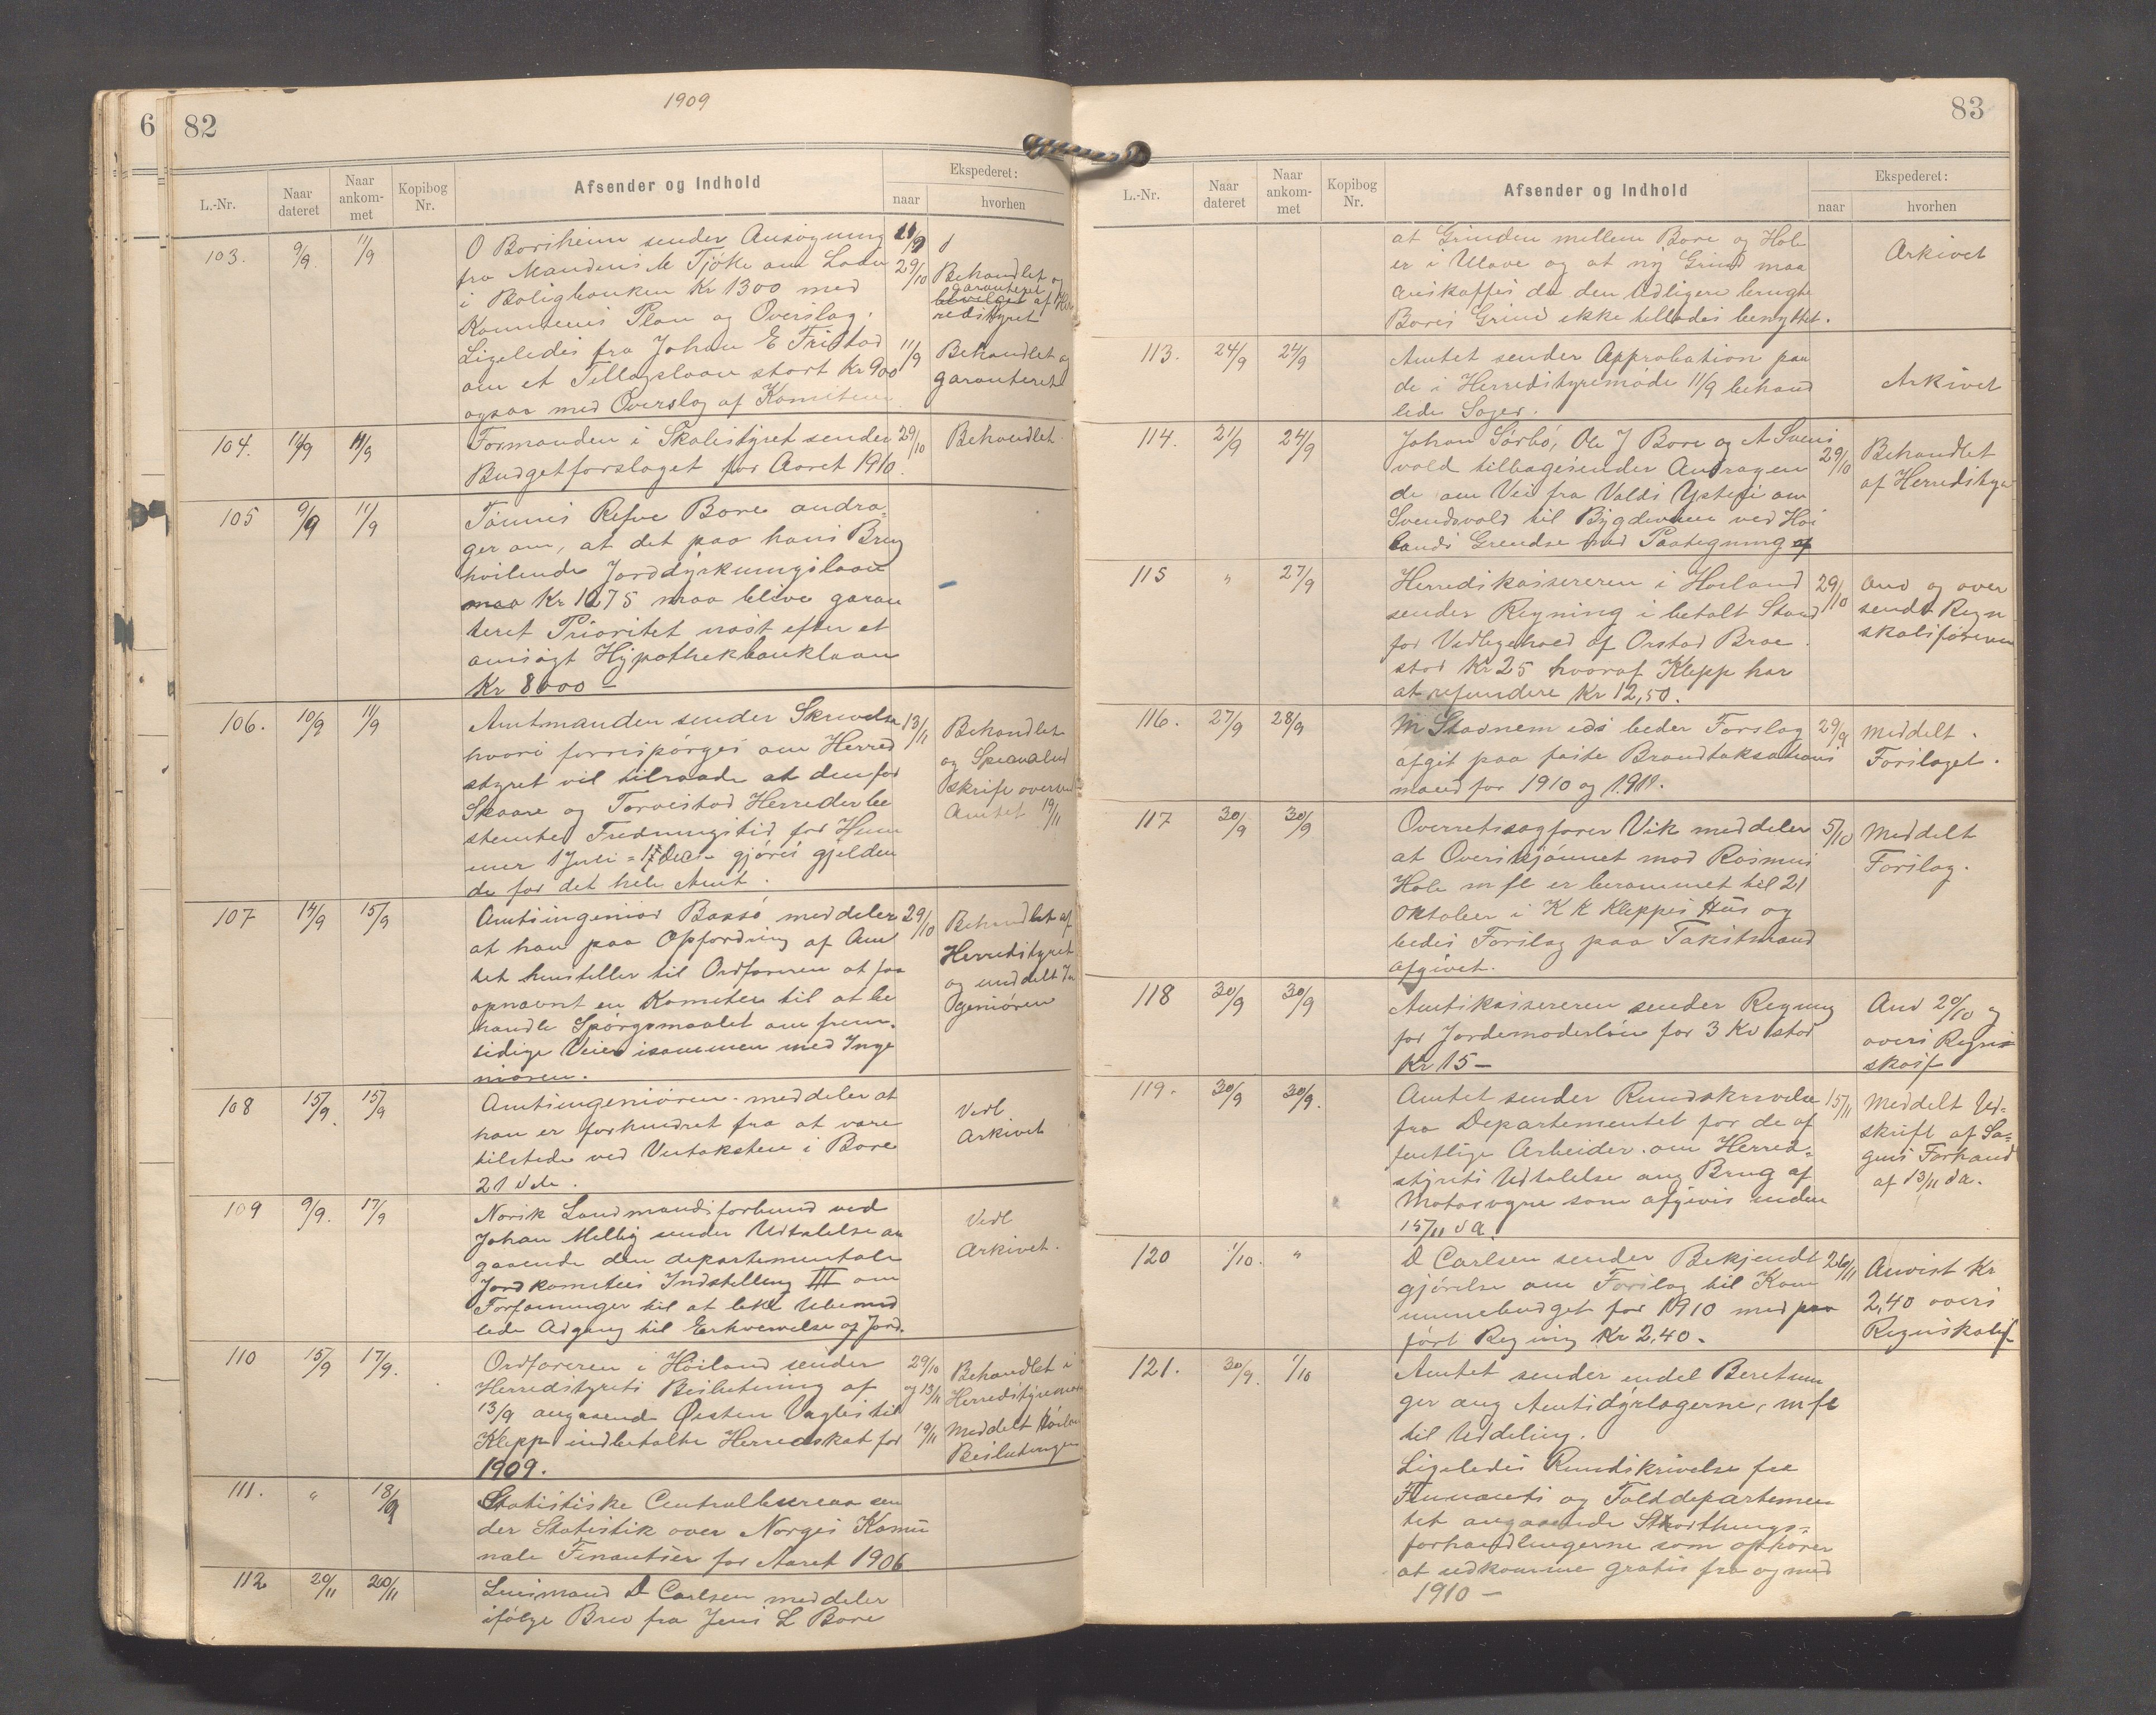 6
82
1909
L.-Nr.
Naar dateret
Naar ankommet
Kopibog Nr.
Afsender og Indhold
Ekspederet:
naar
hvorhen
103. 9/9 11/9 O Borsheim sender Ansøgning 11/9
fra M Tjøtta om Laan 29/10 Behandlet og
i Boligbanken Kr 1300 med garanteret af Her
Komiteens Plan og Overslag. redsstyret
Ligeledes fra Johan E Friestad 11/9 Behandlet og
om et Tillægslaan stort Kr 900 garanteret
ogsaa med Overslag af Komiteen
104. 11/9 11/9 Formanden i Skolestyret sender 29/10 Behandlet
Budgetforslaget for Aaret 1910.
105 9/9 11/9 Tønnes Refve Bore andra-
ger om, at det paa hans Brug
hvilende Jorddyrkningslaan
Kr 1275 maa blive garan
teret Prioritet næst efter et
ansøgt Hypothekbanklaan
Kr 8000 –
106. 10/9 11/9 Amtmanden sender Skrivelse 13/11 Behandlet
hvori forespørges om Herred og Specialud
styret vil tilraade at den for skrift oversend
Skaare og Torvestad Herreder be Amtet 19/11
stemte Fredningstid for Hum
mer 1 Juli = 17 Dec – gjøres gjelden
de for det hele Amt.
107 14/9 15/9 Amtsingeniør Bassø meddeler 29/10 Behandlet af
at han paa Opfordring af Am Herredsstyret
tet henstiller til Ordføreren at faa og meddelt In
opnævnt en Komitee til at be geniøren
handle Spørgsmaalet om frem-
tidige Veier isammen med Inge
niøren.
108 15/9. 15/9 Amtsingeniøren meddeler at Vedl
han er forhindret fra at være Arkivet
tilstede ved Veitaksten i Bore
21 ds.
109 9/9. 17/9 Norsk Landmandsforbund ved Vedl
Johan Mellbye sender Udtalelse an Arkivet.
gaaende den departementale
Jordkomites Indstilling III om
Forføininger til at lette Ubemid
lede Adgang til Erhvervelse af Jord.
110 15/9 17/9. Ordføreren i Høiland sender 29/10 Behandlet i
Herredstyrets Beslutning af og 13/11 Herredstyremøde
13/9 angaaende Østen Vagles til 19/11 Meddelt Høiland
Klepp indbetalte Herredsskat for Beslutningen
1909.
111. " 18/9 Statistiske Centralbureau sen
der Statistik over Norges Komu
nale Finantser for Aaret 1906
112 20/11 20/11 Lensmand D Carlsen meddeler
ifølge Brev fra Jens L Bore
83
L.-Nr.
Naar dateret
Naar ankommet
Kopibog Nr.
Afsender og Indhold
Ekspederet:
naar
hvorhen
at Grinden mellem Bore og Hole Arkivet
er i Ulave og at ny Grind maa
anskaffes da den tidligere brugte
Bores Grind ikke tillades benyttet.
113. 24/9 24/9 Amtet sender Approbation paa
de i Herredsstyremøde 11/9 behand Arkivet
lede Sager.
114. 21/9 24/9 Johan Sørbø, Ole J Bore og A Svens
vold tilbagesender Andragen 29/10 Behandlet
de om Vei fra Volds om af Herredsstyr
Svendsvold til Bygdeveien ved Høi
lands Grendse med Paategning af
115 " 27/9 Herredskasereren i Høiland 29/10 Anv og over
sender Regning i betalt Stand sendt Regn
for Vedligehold af Orstad Bro skabsføreren
stor Kr 25 hvoraf Klepp har
at refundere Kr 12,50.
116. 27/9 28/9 M Stadnem beder Forslag 29/9 Meddelt
afgit paa faste Brandtaksations Forslaget.
mænd for 1910 og 1911.
117 30/9 30/9 Overretssagfører Vik meddeler 5/10 Meddelt
at Overskjønnet mod Rasmus Forslag.
Hole m fl er berammet til 21
Oktober i K K Kleppes Hus og
bedes Forslag paa Takstmænd
afgivet.
118 30/9 30/9 Amtskasereren sender Regning Anv 29/10 og
for Jordemoderløn for 3 Kv stor overs Regn
Kr 15 – skabsf
119. 30/9 30/9. Amtet sender Rundskrivelse 15/11 Meddelt Ud-
fra Departementet for de of skrift af Sa-
fentlige Arbeider om Herred- gens Forhand
styrets Udtalelse ang Brug af af 13/11 da.
Motorvogne som afgives inden
15/11 d A.
120 1/10. " D Carlsen sender Bekjendt 26/11 Anvist Kr
gjørelse om Forslag til Kom 2,40 overs
munebudget for 1910 med paa Regnskabsf
ført Regning Kr 2,40.
121. 30/9. 1/10 Amtet sender endel Beretnin
ger ang Amtsdyrlægerne, m fl
til Uddeling.
Ligeledes Rundskrivelse fra
Finants og Tolddepartemen
tet angaaende Storthings-
forhandlingerne som ophører
at udkomme gratis fra og med
1910 –